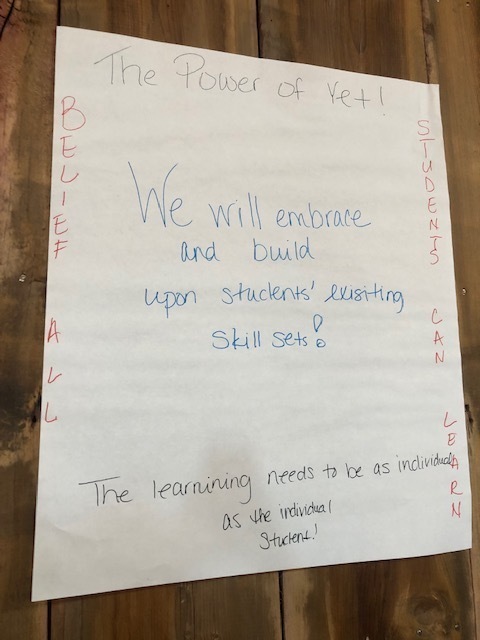 The Power of Yet!
BELIEF ALL
STUDENTS CAN LEARN
We will embrace
and build
upon students' exisiting
skill sets!
The learnining needs to be as individual
as the individual
student!